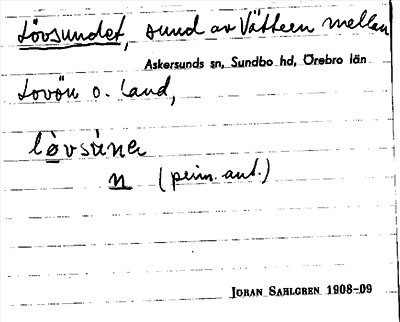 Lövsundet, sund av Vättern mellan
Askersunds sn, Sundbo hd, Örebro län
Lovön o. land,
lövsúnə
n (prim. ant.)
JÖRAN SAHLGREN 1908-09